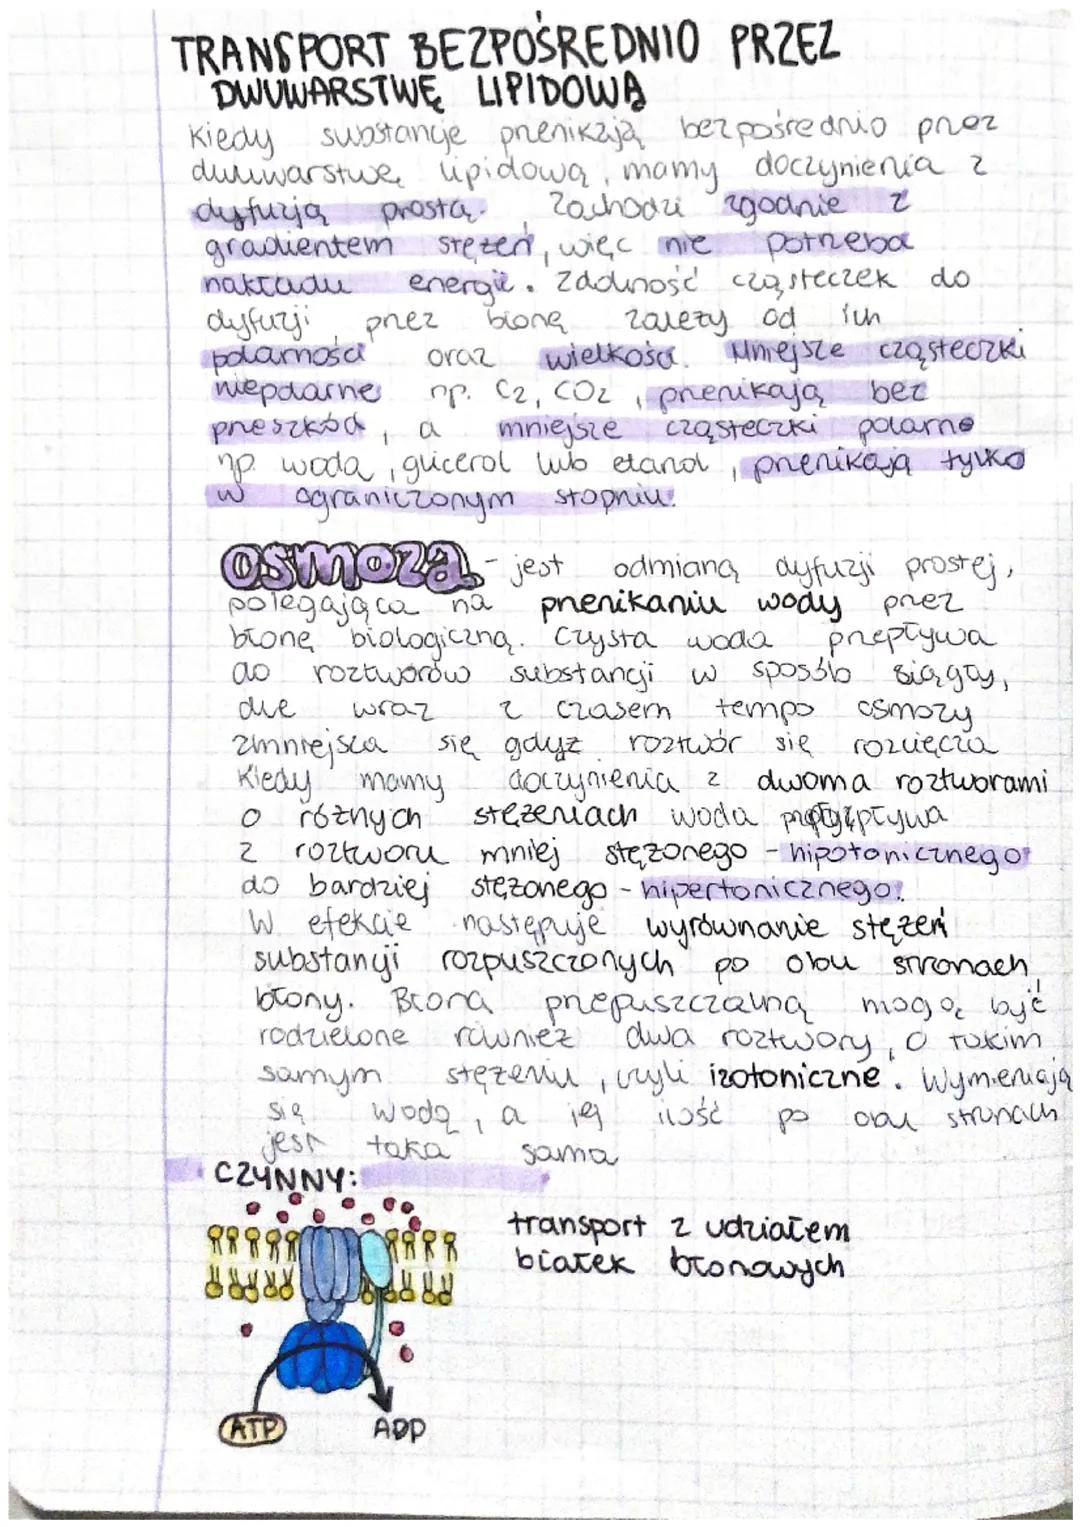 TRANSPORT BEZPOŚREDNIO PRZEZ
DWUWARSTWĘ LIPIDOWĄ
Kiedy substancje przenikają bezpośrednio przez
dwuwarstwę lipidową, mamy doczynienia z
dyfuzją prostą. Zachodzi zgodnie z
gradientem stężeń, więc nie potrzeba
nakładu energii. Zdolność cząsteczek do
dyfuzji przez błonę zależy od ich
polarności oraz wielkości. Mniejsze cząsteczki
niepolarne np. C2, CO2, przenikają bez
przeszkód, a mniejsze cząsteczki polarne
np. woda, glicerol lub etanol, przenikają tylko
w ograniczonym stopniu.
osmoza - jest odmianą dyfuzji prostej,
polegająca na przenikaniu wody przez
błonę biologiczną. Czysta woda przepływa
do roztworów substancji w sposób ciągły,
ale wraz z czasem tempo osmozy
zmniejsza się gdyż roztwór się rozcięcza
Kiedy mamy doczynienia z dwoma roztworami
o różnych stężeniach woda przepływa
z roztworu mniej stężonego - hipotonicznego
do bardziej stężonego - hipertonicznego.
W efekcie następuje wyrównanie stężeń
substancji rozpuszczonych po obu stronach
błony. Błoną przepuszczalną mogą być
rodzielone również dwa roztwory, o takim
samym stężeniu, czyli izotoniczne. Wymieniają
się wodą, a jej ilość po obu stronach
jest taka sama
CZYNNY:
transport z udziałem
białek błonowych
ATP
ADP